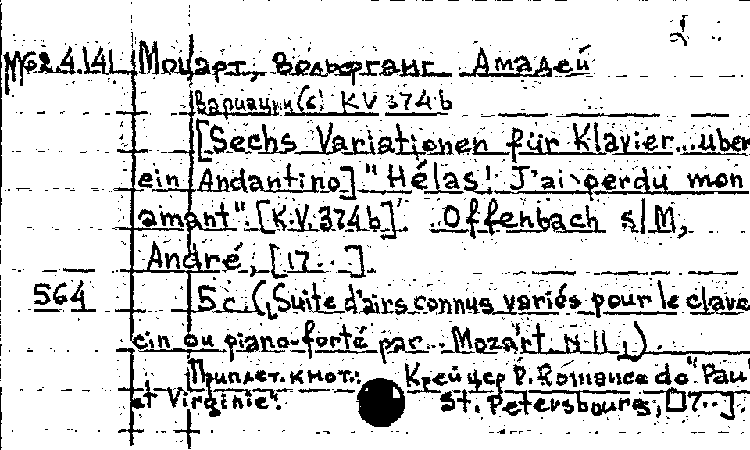 М62.4.141 Моцарт, Вольфганг Амадей
Вариации (6) KV 374b
[Sechs Variationen für Klavier...uber
ein Andantino] "Hélas! J'ai perdu mon
amant". [K.V. 374b]. Offenbach s/M,
André, [17..].
564 5 с. („Suite d'airs connus variés pour le clave
cin ou piano-forté par... Mozart. N 11„).
Приплет. к нот.: Крейцер Р. Romance de "Paul
et Virginie". St. Petersbourg, [17..].